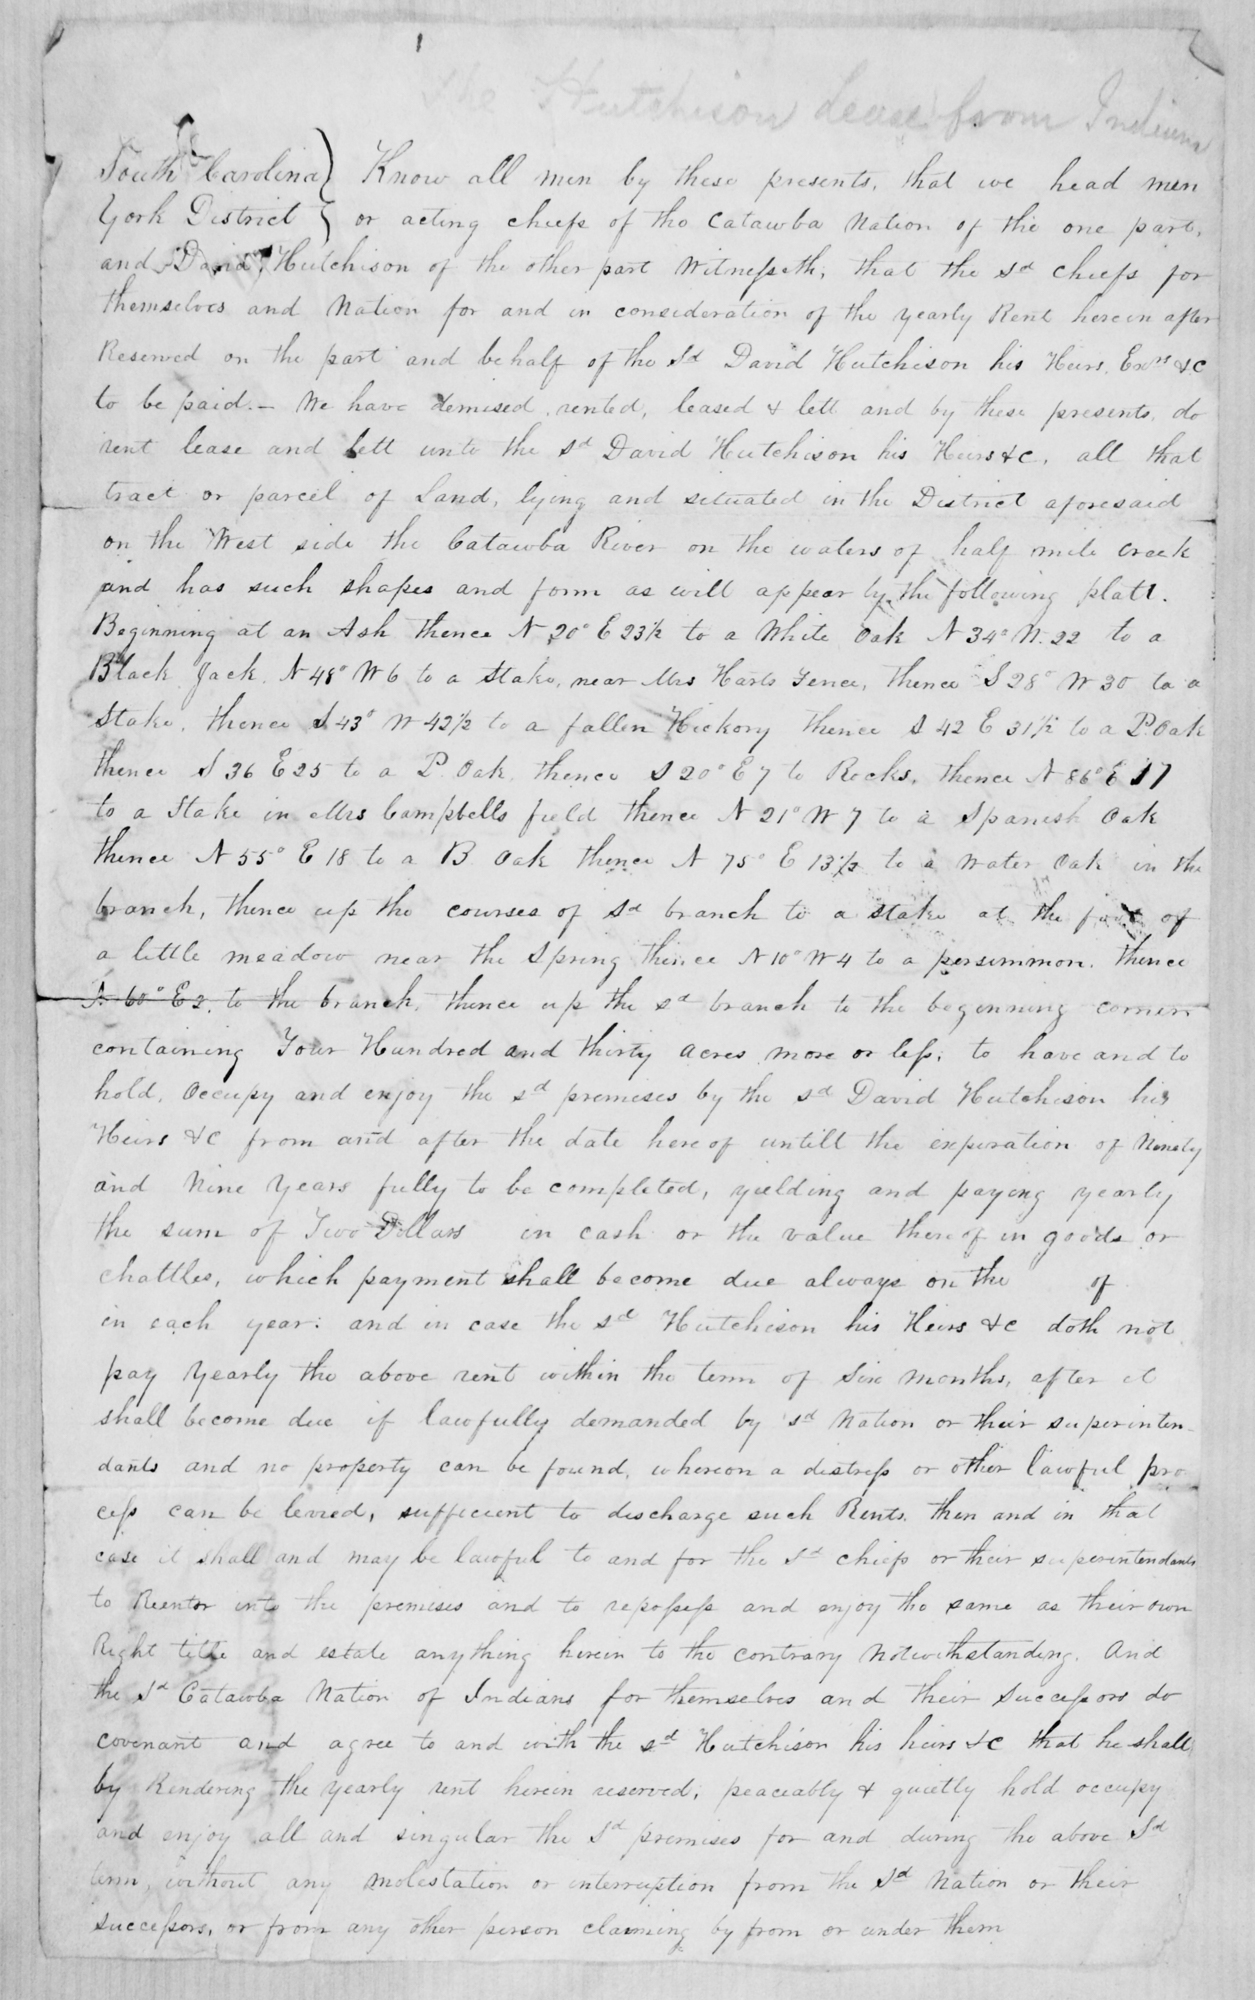 The Hutchison Lease from Indians
South Carolina } Know all men by these presents, that we head men
York District } or acting chiefs of the Catawba Nation of the one part,
and David Hutchison of the other part Witnesseth, that the sd chiefs for
themselves and Nation for and in consideration of the yearly Rent herein after
Reserved on the part and behalf of the Sd David Hutchison his Heirs, Exrs &C
to be paid.— We have demised, rented, leased & lett and by these presents, do
rent lease and lett unto the sd David Hutchison his Heirs &C, all that
tract or parcel of Land, lying and situated in the District aforesaid
on the West side the Catawba River on the waters of half mile creek
and has such shapes and form as will appear by the following platt.
Beginning at an Ash thence N 20° E 23½ to a White Oak N 34° W. 22 to a
Black Jack. N 48° W 6 to a Stake, near Mrs Harts Fence, thence S 28° W 30 to a
Stake, thence S 43° W 42½ to a fallen Hickory thence S 42 E 31½ to a P. Oak
thence S 36 E 25 to a P. Oak, thence S 20° E 7 to Rocks, thence N 86° E 17
to a Stake in Mrs Campbells field thence N 21° W 7 to a Spanish Oak
thence N 55° E 18 to a B Oak thence N 75° E 13½ to a water Oak in the
branch, thence up the courses of sd branch to a stake at the foot of
a little meadow near the Spring thence N 10° W 4 to a persimmon. thence
N 60° E 2. to the branch, thence up the sd branch to the beginning corner
containing Four Hundred and thirty acres more or less, to have and to
hold, occupy and enjoy the sd premises by the sd David Hutchison his
Heirs &C from and after the date hereof untill the experation of Ninety
and Nine Years fully to be completed, yielding and paying yearly
the sum of Two Dollars in cash or the value thereof in goods or
chattles, which payment shall become due always on the of
in each year: and in case the sd Hutchison his Heirs &C doth not
pay Yearly the above rent within the term of Six Months, after it
shall become due if lawfully demanded by sd Nation or their superinten-
dants and no property can be found, whereon a distress or other lawful pro
cess can be levied, sufficient to discharge such Rents. then and in that
case it shall and may be lawful to and for the Sd chiefs or their superintendants
to Reenter into the premises and to repossess and enjoy the same as their own
Right title and estate anything herein to the contrary Notwithstanding. And
the Sd Catawba Nation of Indians for themselves and their Successors do
covenant and agree to and with the sd Hutchison his heirs &C that he shall
by Rendering the yearly rent herein reserved, peaceably & quietly hold occupy
and enjoy all and singular the Sd premises for and during the above Sd
term, without any molestation or interruption from the Sd Nation or their
successors, or from any other person claiming by from or under them